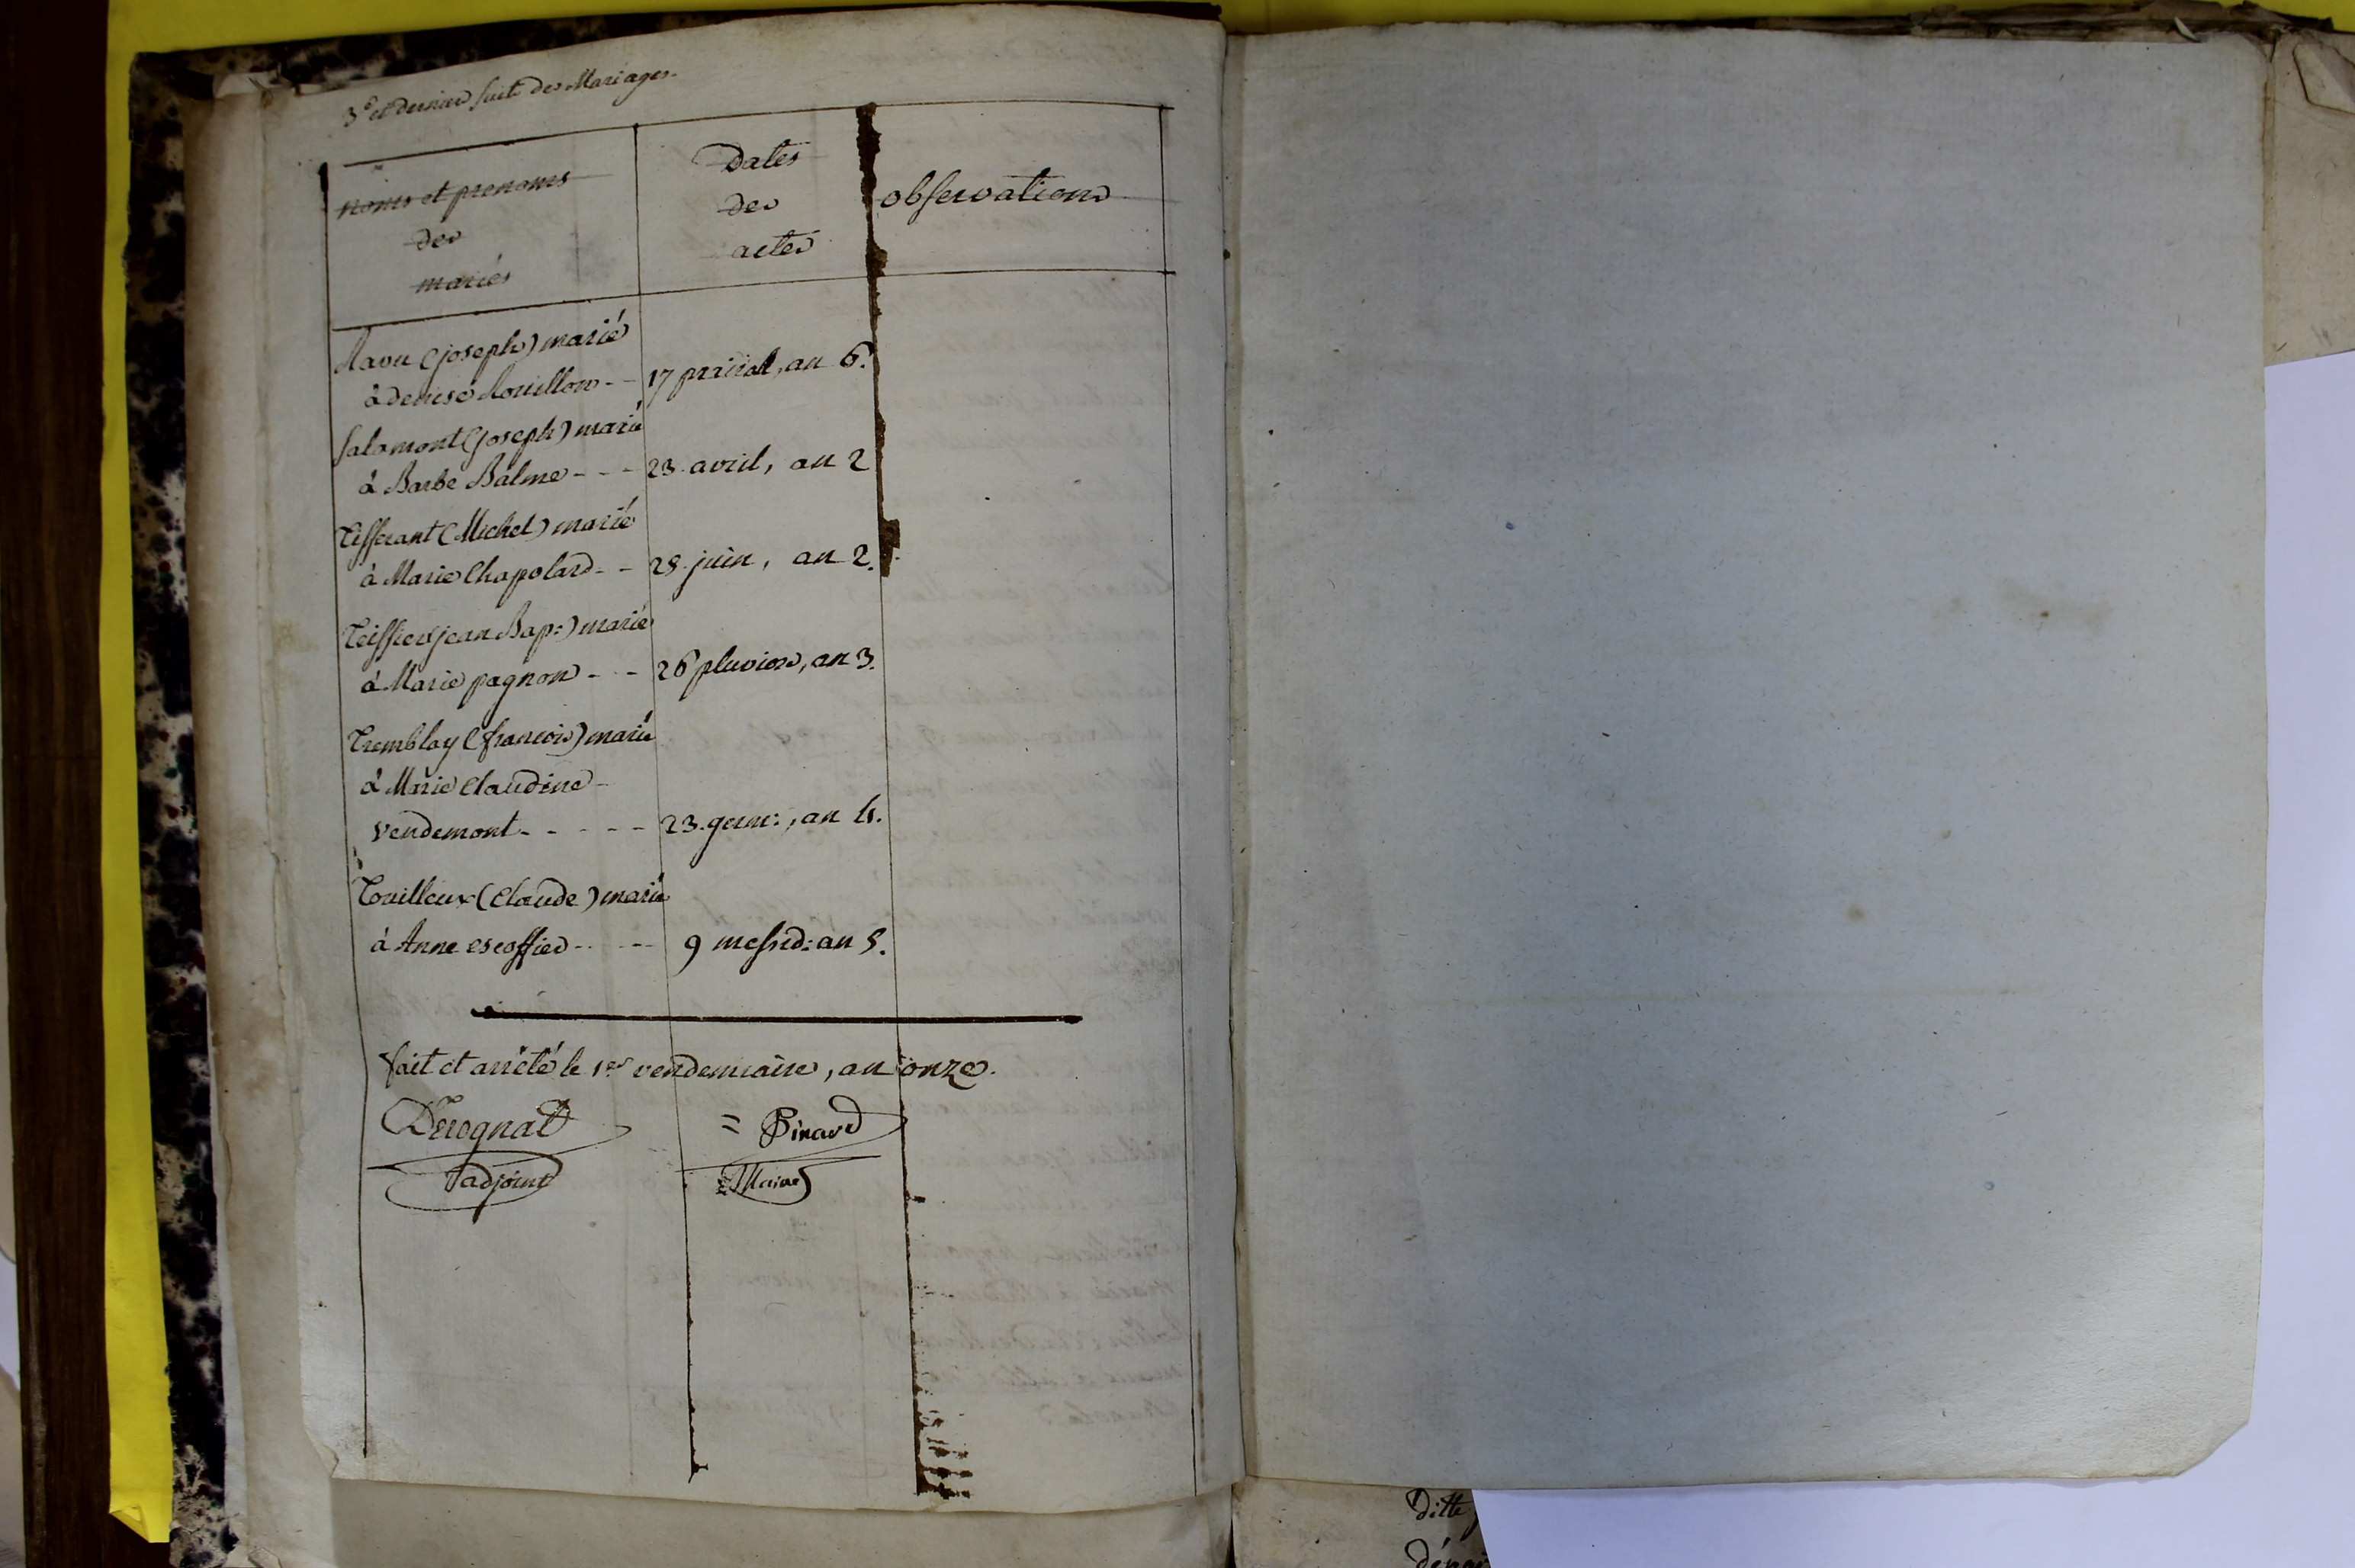 3e et dernier suite des Mariages.
noms et prenoms
des
mariés
Dates
des
actes
observations
Ravu (joseph) marié
à denise Rouillon - - 17 prairial, an 6.
Salamont (joseph) marié
à Barbe Balme - - - 23 avril, an 2
Tisserant (Michel) marié
à Marie Chapolard - - 28 juin, an 2.
Teissier (jean Bap:) marié
à Marie pagnon - - - 26 pluviose, an 3.
Tremblay (francois) marié
à Marie Claudine -
vendemont - - - - - 23 germ:, an 4.
Touilleux (Claude) marié
à Anne escoffier - - - - 9 messid: an 5.
fait et arrêté le 1er vendemiaire, an onze.
Derognat = Pinard
adjoint Maire
Ditte